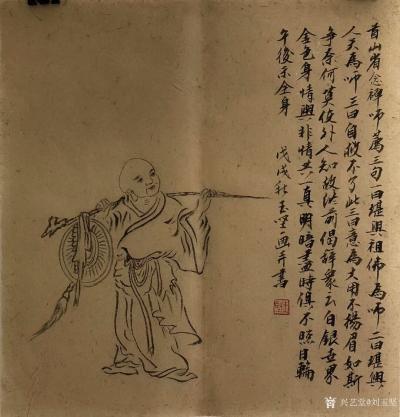 首山省念禅师薦三句一曰堪與祖佛為師二曰堪與
人天為師三曰自救不了此三曰意為大用不揚眉如斯
争奈何莫使外人知故法前偈辞衆云白銀世界
金色身情與非情共一真明暗盡時俱不照日輪
午後示全身
戊戌秋玉坚画并書
兴艺堂@刘玉坚